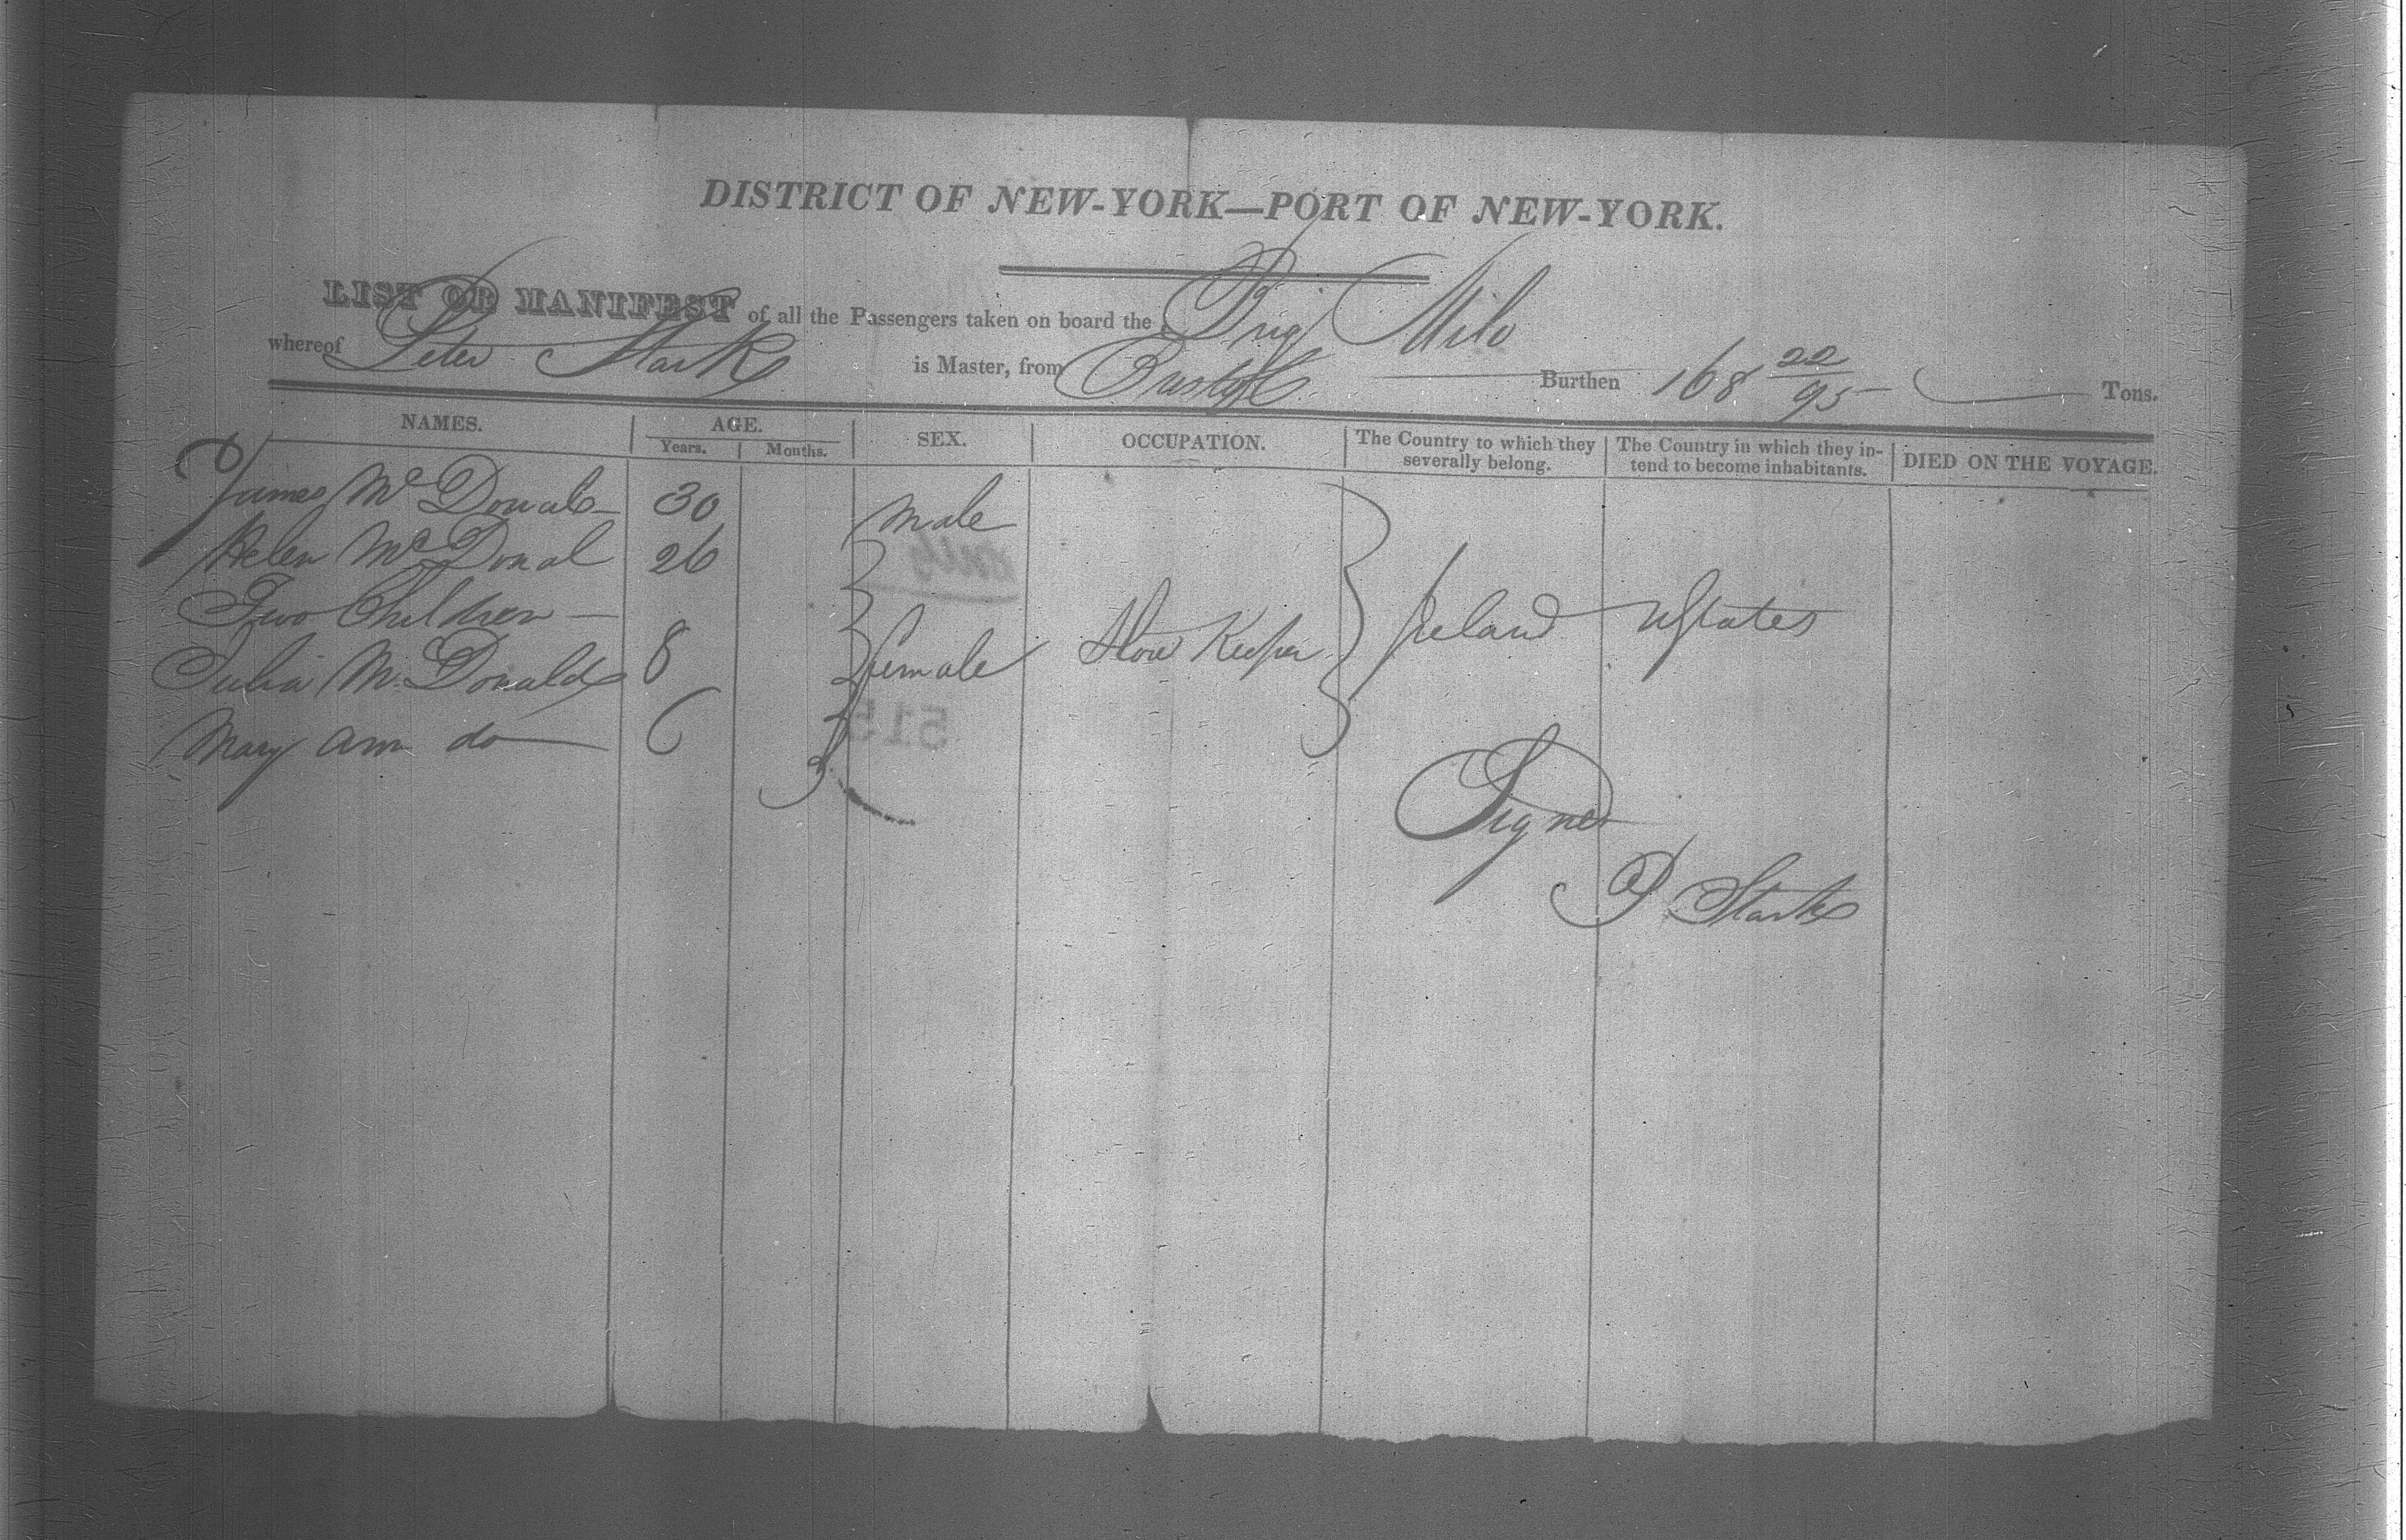 DISTRICT OF NEW-YORK—PORT OF NEW-YORK.
LIST OR MANIFEST of all the Passengers taken on board the Brig Milo
whereof Peter Stark is Master, from Bristol Burthen 168 22/95 Tons.
NAMES. AGE. SEX. OCCUPATION. The Country to which they severally belong. The Country in which they intend to become inhabitants. DIED ON THE VOYAGE.
Years. Months.
James Mc Donald 30 male
Helen Mc Donal 26
Two Children
Julia Mc Donald 8 female Store Keeper Ireland UStates
Mary Ann do 6
515
Signed
P Stark